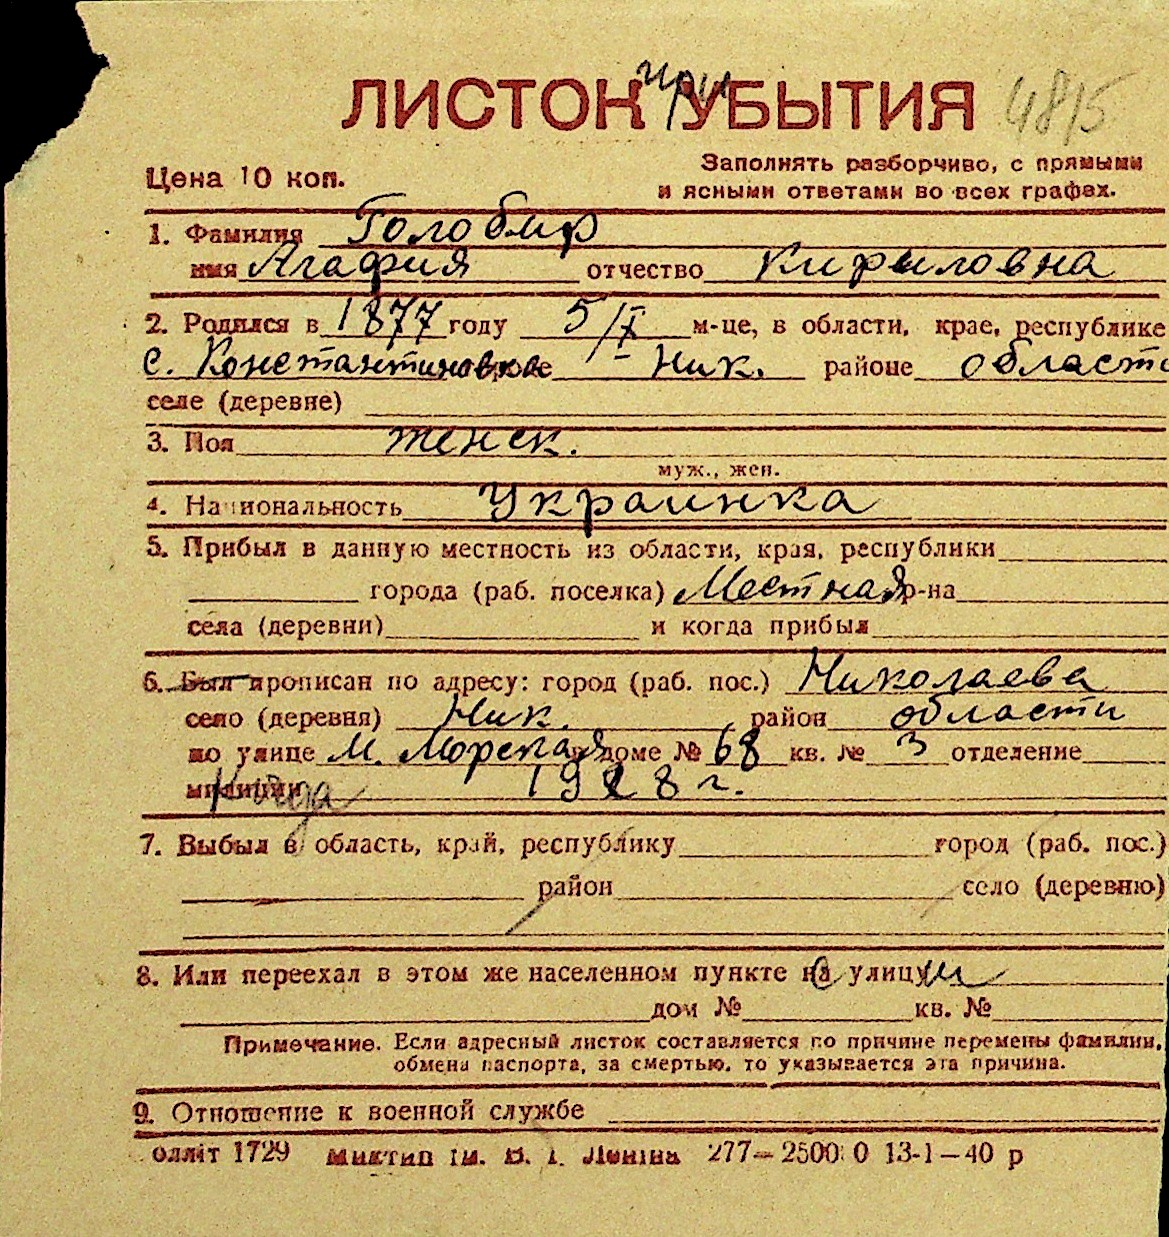 ЛИСТОК при УБЫТИЯ 4815
Цена 10 коп.
Заполнять разборчиво, с прямыми
и ясными ответами во всех графах.
1. Фамилия Голобир
имя Агафия отчество Кирыловна
2. Родился в 1877 году 5/II м-це, в области, крае, республике
с. Константиновка Ник. районе област
селе (деревне)
3. Пол женск.
муж., жен.
4. Национальность Украинка
5. Прибыл в данную местность из области, края, республики
города (раб. поселка) Местная р-на
села (деревни) и когда прибыл
6. Был прописан по адресу: город (раб. пос.) Николаева
село (деревня) Ник. район области
по улице М. Морская доме № 68 кв. № 3 отделение
милиции Когда 1928 г.
7. Выбыл в область, край, республику город (раб. пос.)
район село (деревню)
8. Или переехал в этом же населенном пункте на улицу
дом № кв. №
Примечание. Если адресный листок составляется по причине перемены фамилии,
обмена паспорта, за смертью, то указывается эта причина.
9. Отношение к военной службе
олліт 1729 Миктип ім. В. І. Леніна 277—2500 0 13-1—40 р